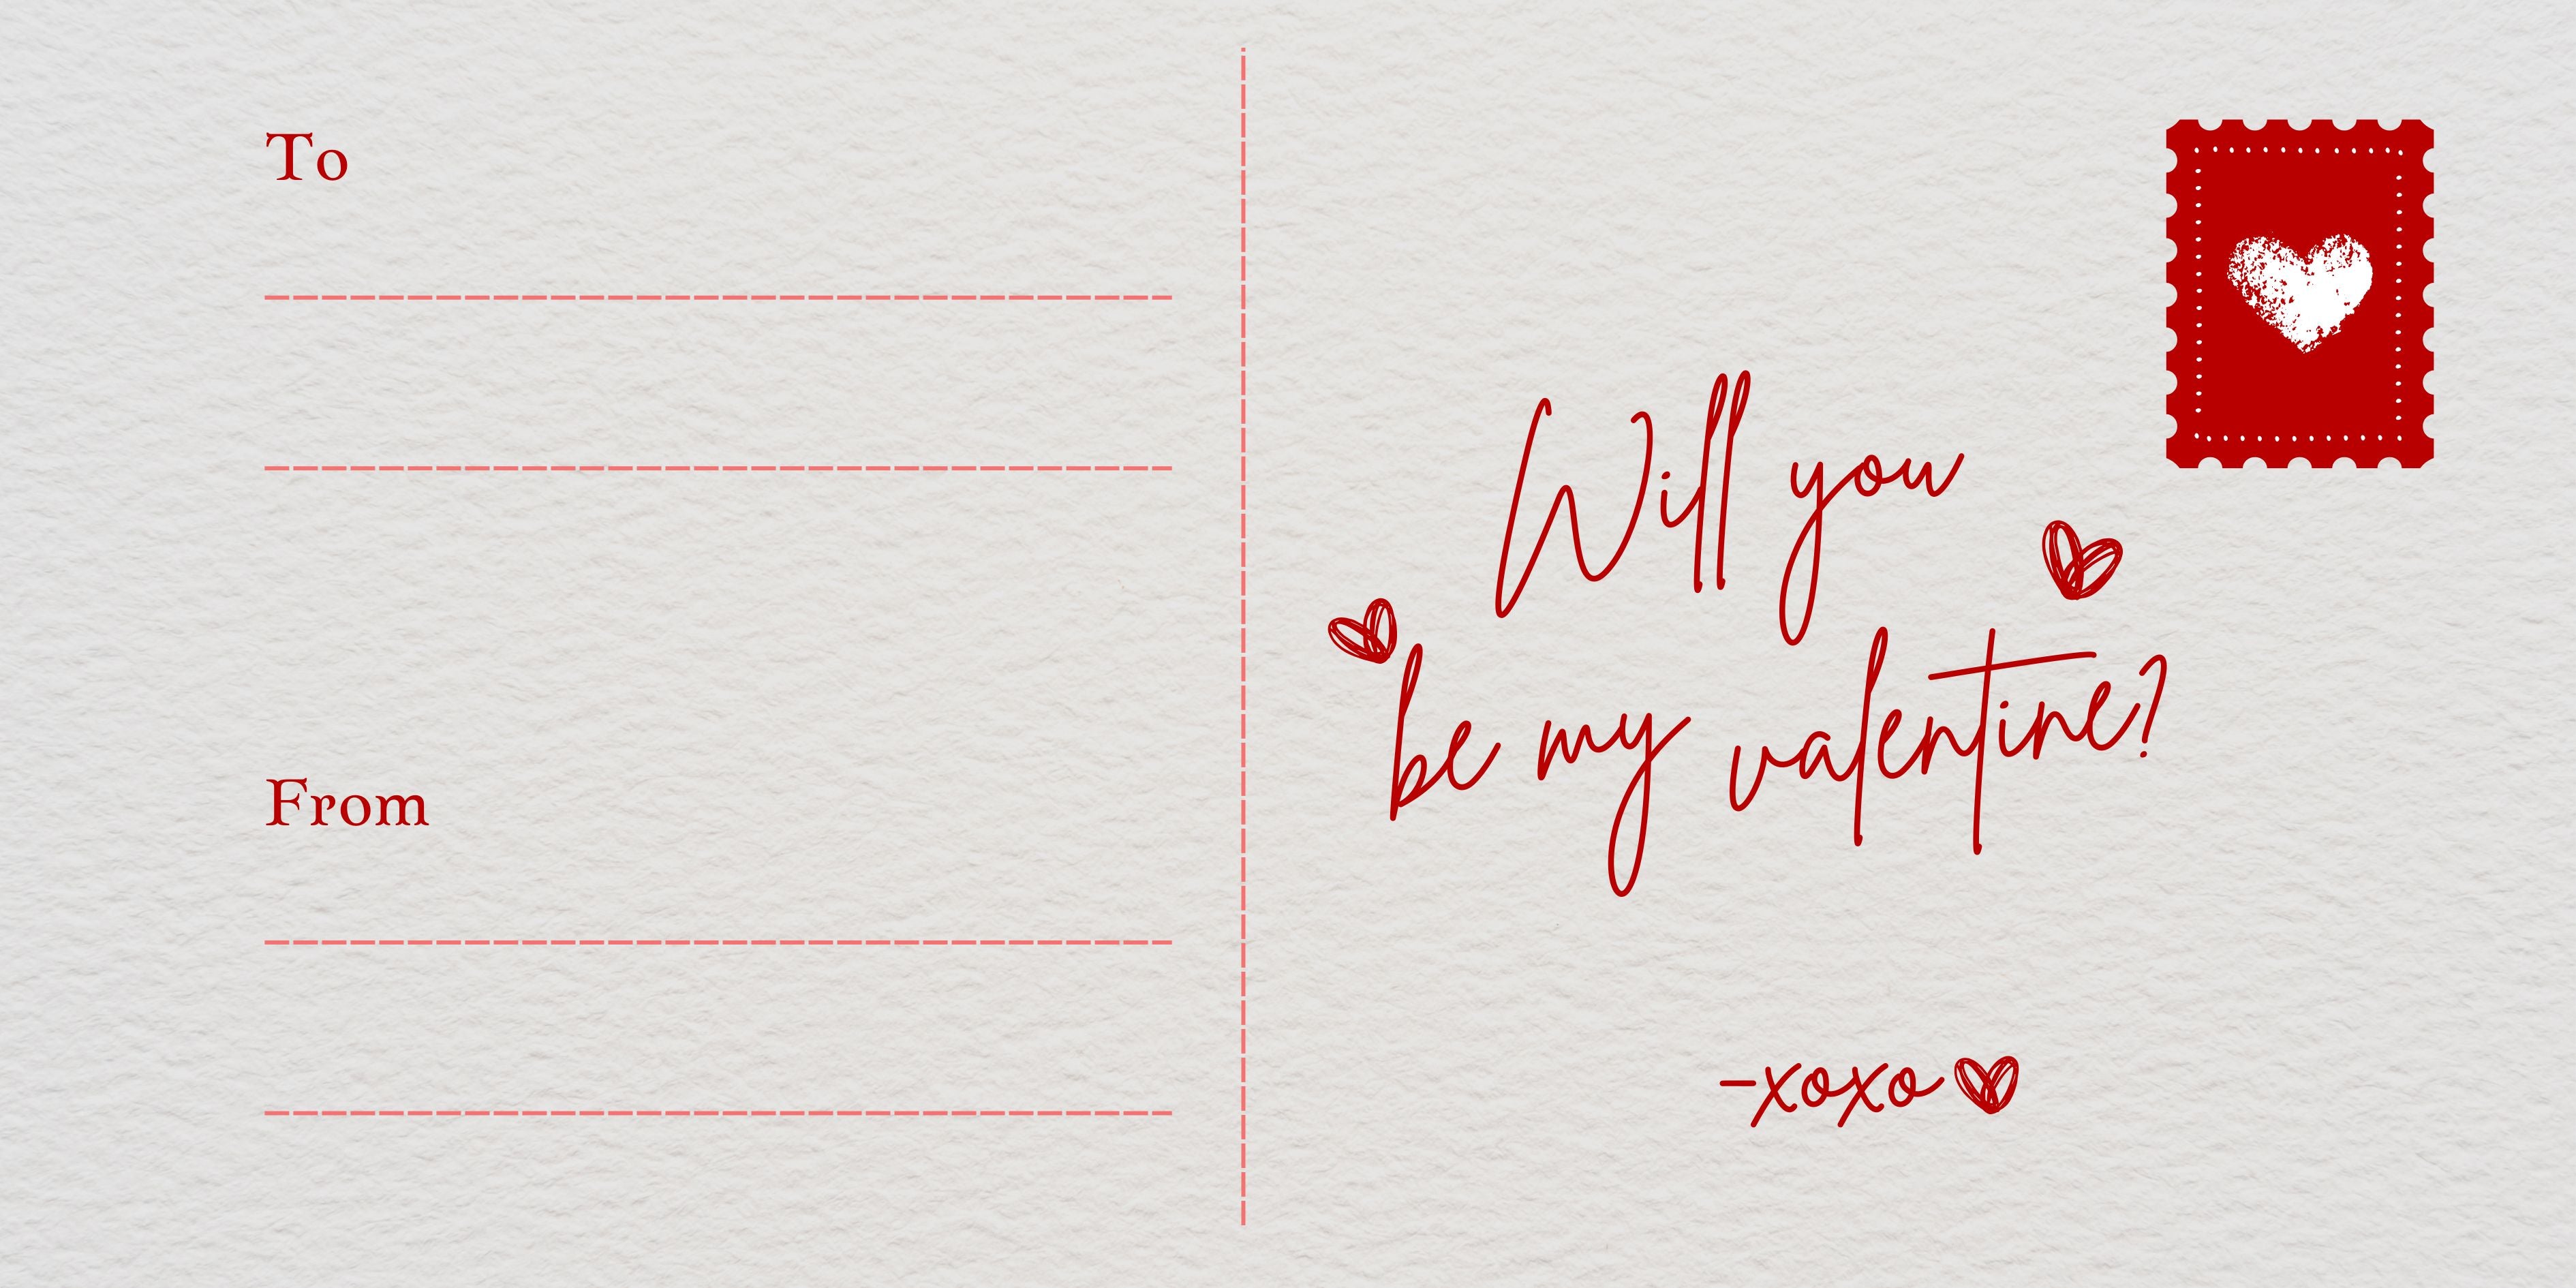 To
From
Will you
be my valentine?
-xoxo